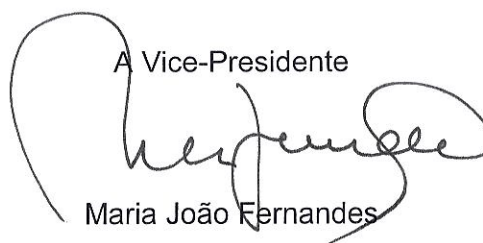 A Vice-Presidente
Maria João Fernandes